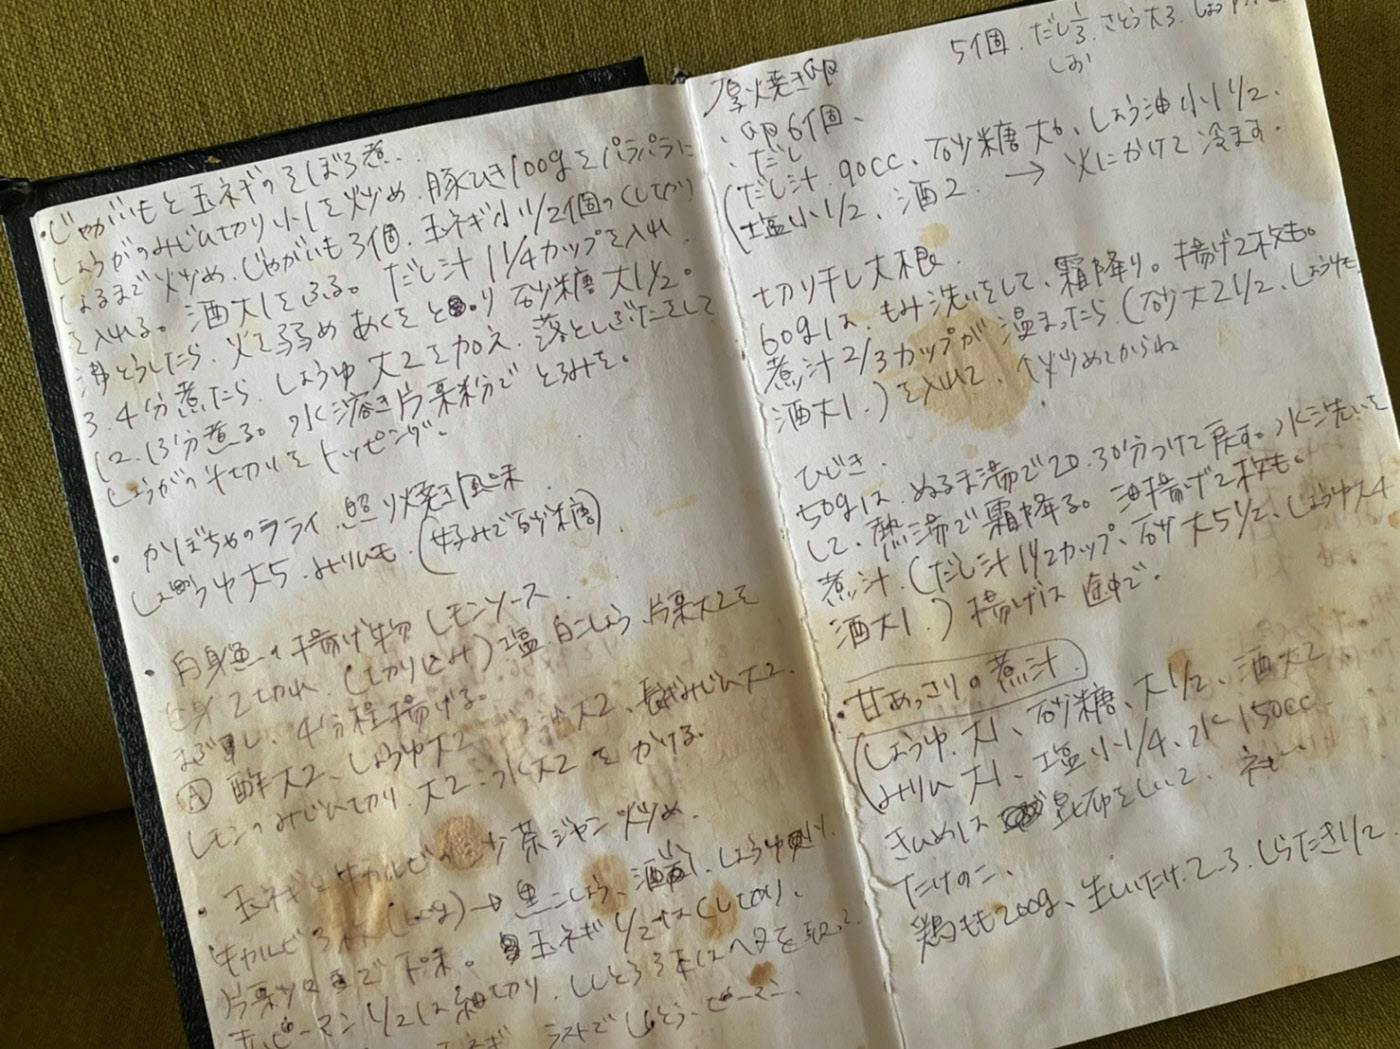 ・じゃがいもと玉ネギのそぼろ煮.
しょうがのみじん切り小1を炒め.豚ひき100gをパラパラに
なるまで炒め.じゃがいも3個.玉ネギ小1/2個のくし切り
を入れる。酒大1をふる。だし汁1 1/4カップを入れ
沸とうしたら.火を弱めあくをとり砂糖大1 1/2。
3.4分煮たら.しょうゆ大2を加え.落としぶたをして
12.13分煮る。水溶き片栗粉でとろみを。
しょうがの千切りをトッピング.
・かぼちゃのフライ.照り焼き風味
しょうゆ大5.みりんも.(好みで砂糖)
・白身魚の揚げ物レモンソース.
白身2切れ.(切り込み)塩.白こしょう.片栗大2を
まぶし.4分程揚げる。
Ⓐ酢大2、しょうゆ大2、油大2、長ネギみじん大2.
レモンのみじん切り.大2.水大2をかける。
・玉ネギと牛カルビの 炒め.
牛カルビ3枚 →黒こしょう、酒 1.しょうゆ
片栗 で下味。玉ネギ1/2はくし切り.
ピーマン1/2は細切り.ししとう3本はヘタを取って
玉ネギ ラストでししとう.ピーマン.
5個.だし1/3.さとう大3.
しお
厚焼き卵
・卵6個、
・だし
(だし汁.90cc、砂糖大6、しょう油小1 1/2.
塩小1/2、酒2. → 火にかけて冷ます.
切り干し大根.
60gは.もみ洗いをして、霜降り。揚げ2枚も。
煮汁2/3カップが温まったら(砂大2 1/2、しょうゆも
酒大1.)を入れて、↑炒めてからね
ひじき.
50gは.ぬるま湯で20.30分つけて戻す。水洗いを
して、熱湯で霜降る。油揚げ2枚も。
煮汁(だし汁1 1/2カップ、砂大5 1/2、しょうゆ大4
酒大1.)揚げは途中で.
・甘あっさりの煮汁.
(しょうゆ.大1、砂糖、大1/2、酒大2
みりん大1、塩小1/4、水150cc.
きんめは 昆布をしいて、
たけのこ、
鶏もも200g、生しいたけ.2.3.しらたき1/2